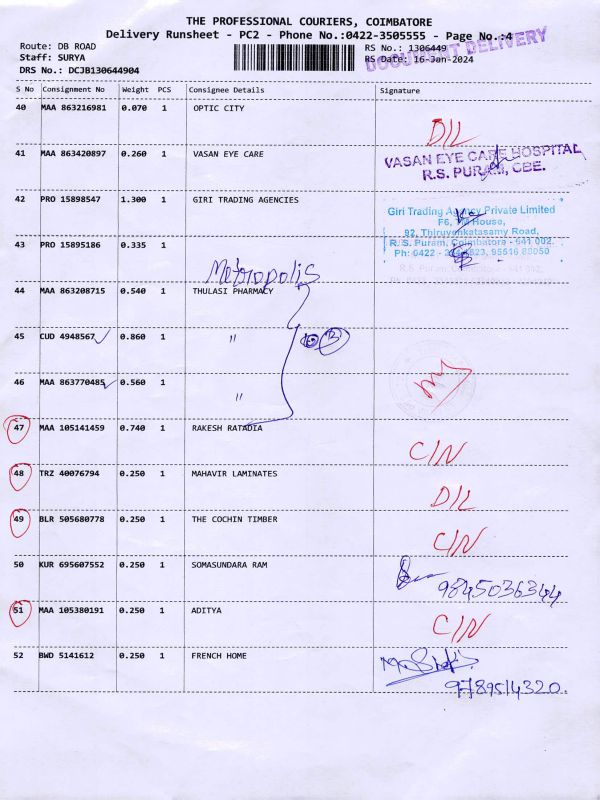 THE PROFESSIONAL COURIERS, COIMBATORE
Delivery Runsheet - PC2 - Phone No.:0422-3505555 - Page No.:4
Route: DB ROAD
RS No.: 1306449
DOCUMENT DELIVERY
Staff: SURYA
RS Date: 16-Jan-2024
DRS No.: DCJB130644904
S No Consignment No Weight PCS Consignee Details Signature
40 MAA 863216981 0.070 1 OPTIC CITY
D/L
41 MAA 863420897 0.260 1 VASAN EYE CARE
VASAN EYE CARE HOSPITAL
R.S. PURAM, CBE.
42 PRO 15898547 1.300 1 GIRI TRADING AGENCIES
Giri Trading Agency Private Limited
F6, House,
92, Thiruvenkatasamy Road,
R. S. Puram, Coimbatore - 641 002.
43 PRO 15895186 0.335 1
Ph: 0422 -
Metropolis
44 MAA 863208715 0.540 1 THULASI PHARMACY
45 CUD 4948567 0.860 1 "
46 MAA 863770485 0.560 1 "
47 MAA 105141459 0.740 1 RAKESH RATADIA
C/N
48 TRZ 40076794 0.250 1 MAHAVIR LAMINATES
D/L
49 BLR 505680778 0.250 1 THE COCHIN TIMBER
C/N
50 KUR 695607552 0.250 1 SOMASUNDARA RAM
9845036344
51 MAA 105380191 0.250 1 ADITYA
C/N
52 BWD 5141612 0.250 1 FRENCH HOME
9789514320.